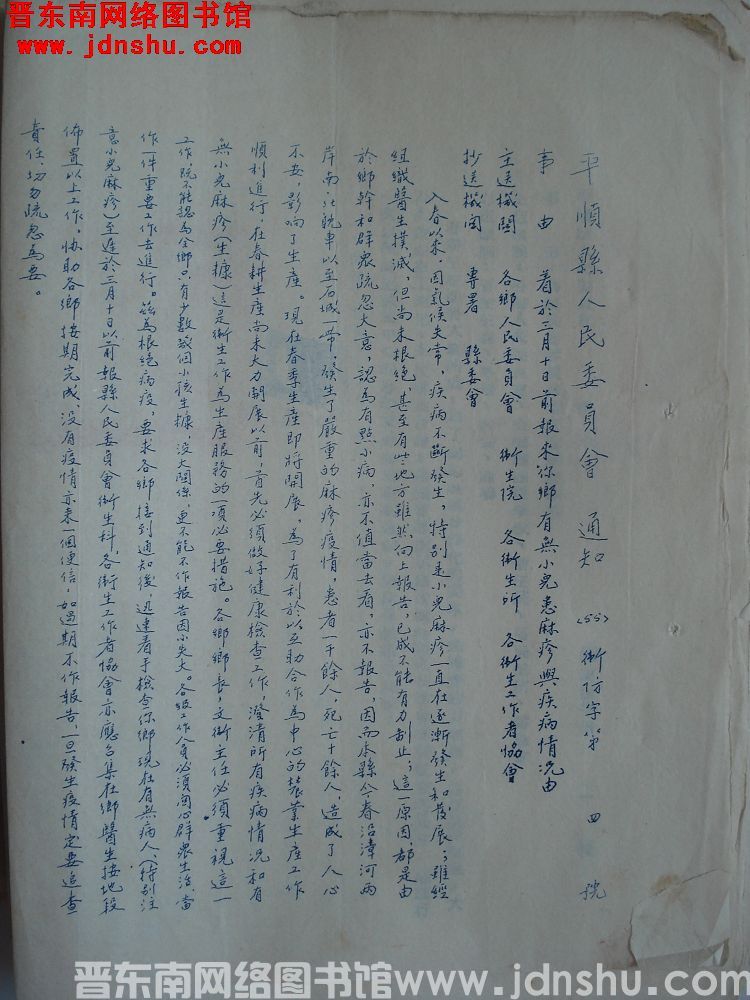 晋东南网络图书馆
www.jdnshu.com
平順縣人民委員會 通知 (55)衛防字第一四號
事由 着於三月十日前報來你鄉有無小兒患麻疹與疾病情况由
主送機関 各鄉人民委員會 衛生院 各衛生所 各衛生工作者協會
抄送機関 專署 縣委會
入春以來,因氣候失常,疾病不斷發生,特别是小兒麻疹一直在逐漸發生和發展;雖經
組織醫生撲滅,但尚未根絕,甚至有些地方雖然向上報告,已成不能有力制止;這一原因,都是由
於鄉幹和群衆疏忽大意,認為有點小病,亦不值當去看,亦不報告,因而本縣今春沿漳河兩
岸南北耽車以至石城一帶,發生了嚴重的麻疹疫情,患者一千餘人,死亡十餘人,造成了人心
不安,影响了生產。現在春季生産即將開展,為了有利於以互助合作為中心的農業生産工作
順利進行,在春耕生產尚未大力開展以前,首先必須做好健康檢查工作,澄清所有疾病情况和有
無小兒麻疹(生糠)這是衛生工作為生產服務的一項必要措施。各鄉鄉長,文衛主任必須重視這一
工作,既不能認為全鄉只有少數或個小孩生糠,没大関係,更不能不作報告因小失大。各級工作人員必須関心群衆生活,當
作一件重要工作去進行。兹為根絕病疫,要求各鄉接到通知後,迅速着手檢查你鄉現在有無病人,(特别注
意小兒麻疹)至遲於三月十日以前報縣人民委員會衛生科,各衛生工作者協會亦應召集在鄉醫生按地段
佈置以上工作,協助各鄉按期完成,没有疫情亦來一個便信,如過期不作報告,一旦發生疫情定要追查
責任,切勿疏忽為要。
晋东南网络图书馆www.jdnshu.com